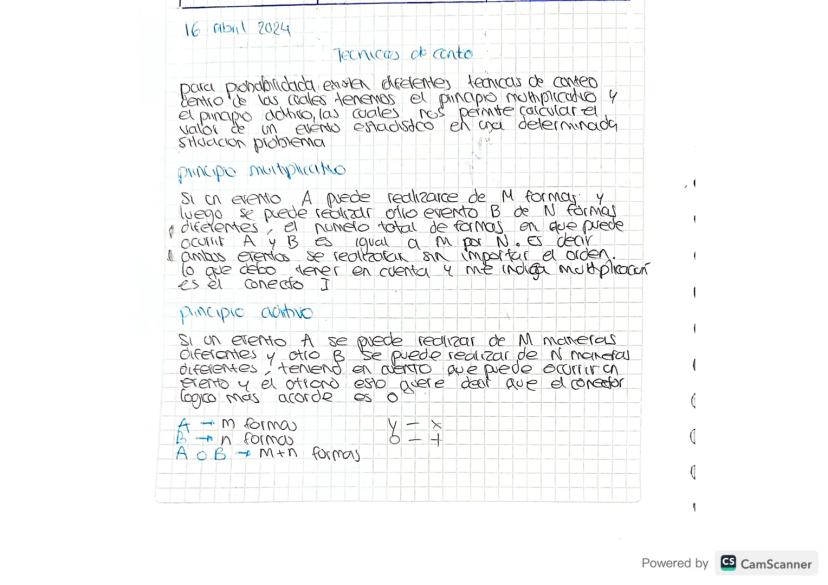 16 abril 2024
Tecnicas de conto
para probabilidada existen diferentes tecnicas de conteo
dentro de las cuales tenemos el principio multiplicativo y
el principo aditivo, las cuales nos permite calcular el
valor de un evento estadistico en una determinada
situacion problema
principo multiplicativo
Si un evento A puede realizarce de M formas y
luego se puede realizar otro evento B de N formas
diferentes, el numero total de formas en que puede
ocurrir A y B es igual a M por N. es decir
ambos eventos se realizaran sin importar el orden.
lo que debo tener en cuenta y me indica multiplicacion
es el conecto I
principio aditivo
Si un evento A se puede realizar de M maneras
diferentes y otro B se puede realizar de N maneras
diferentes, teniend en cuenta que puede ocurrir un
evento y el otro no esto quere decir que el conector
logico mas acorde es o
A → m formas
B → n formas
A o B → m+n formas
y - x
o - +
Powered by CS CamScanner